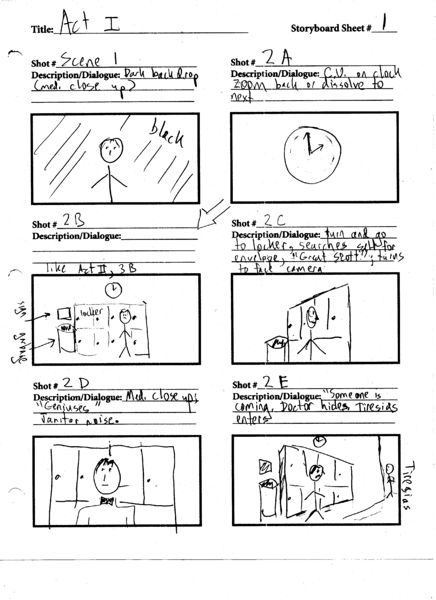 Title: Act I
Storyboard Sheet # 1
Shot # Scene 1
Description/Dialogue: Dark backdrop
(med. close up)
black
Shot # 2A
Description/Dialogue: C.U. on clock
zoom back or dissolve to
next
Shot # 2B
Description/Dialogue:
like Act II, 3B
sign
locker
Shot # 2C
Description/Dialogue: turn and go
to locker, searches self for
envelope, "Great Scott", turns
to face camera
Shot # 2D
Description/Dialogue: Med. close up;
"Geniuses"
Janitor noise.
Shot # 2E
Description/Dialogue: "Someone is
coming, Doctor hides, Tiresias
enters
Tiresias